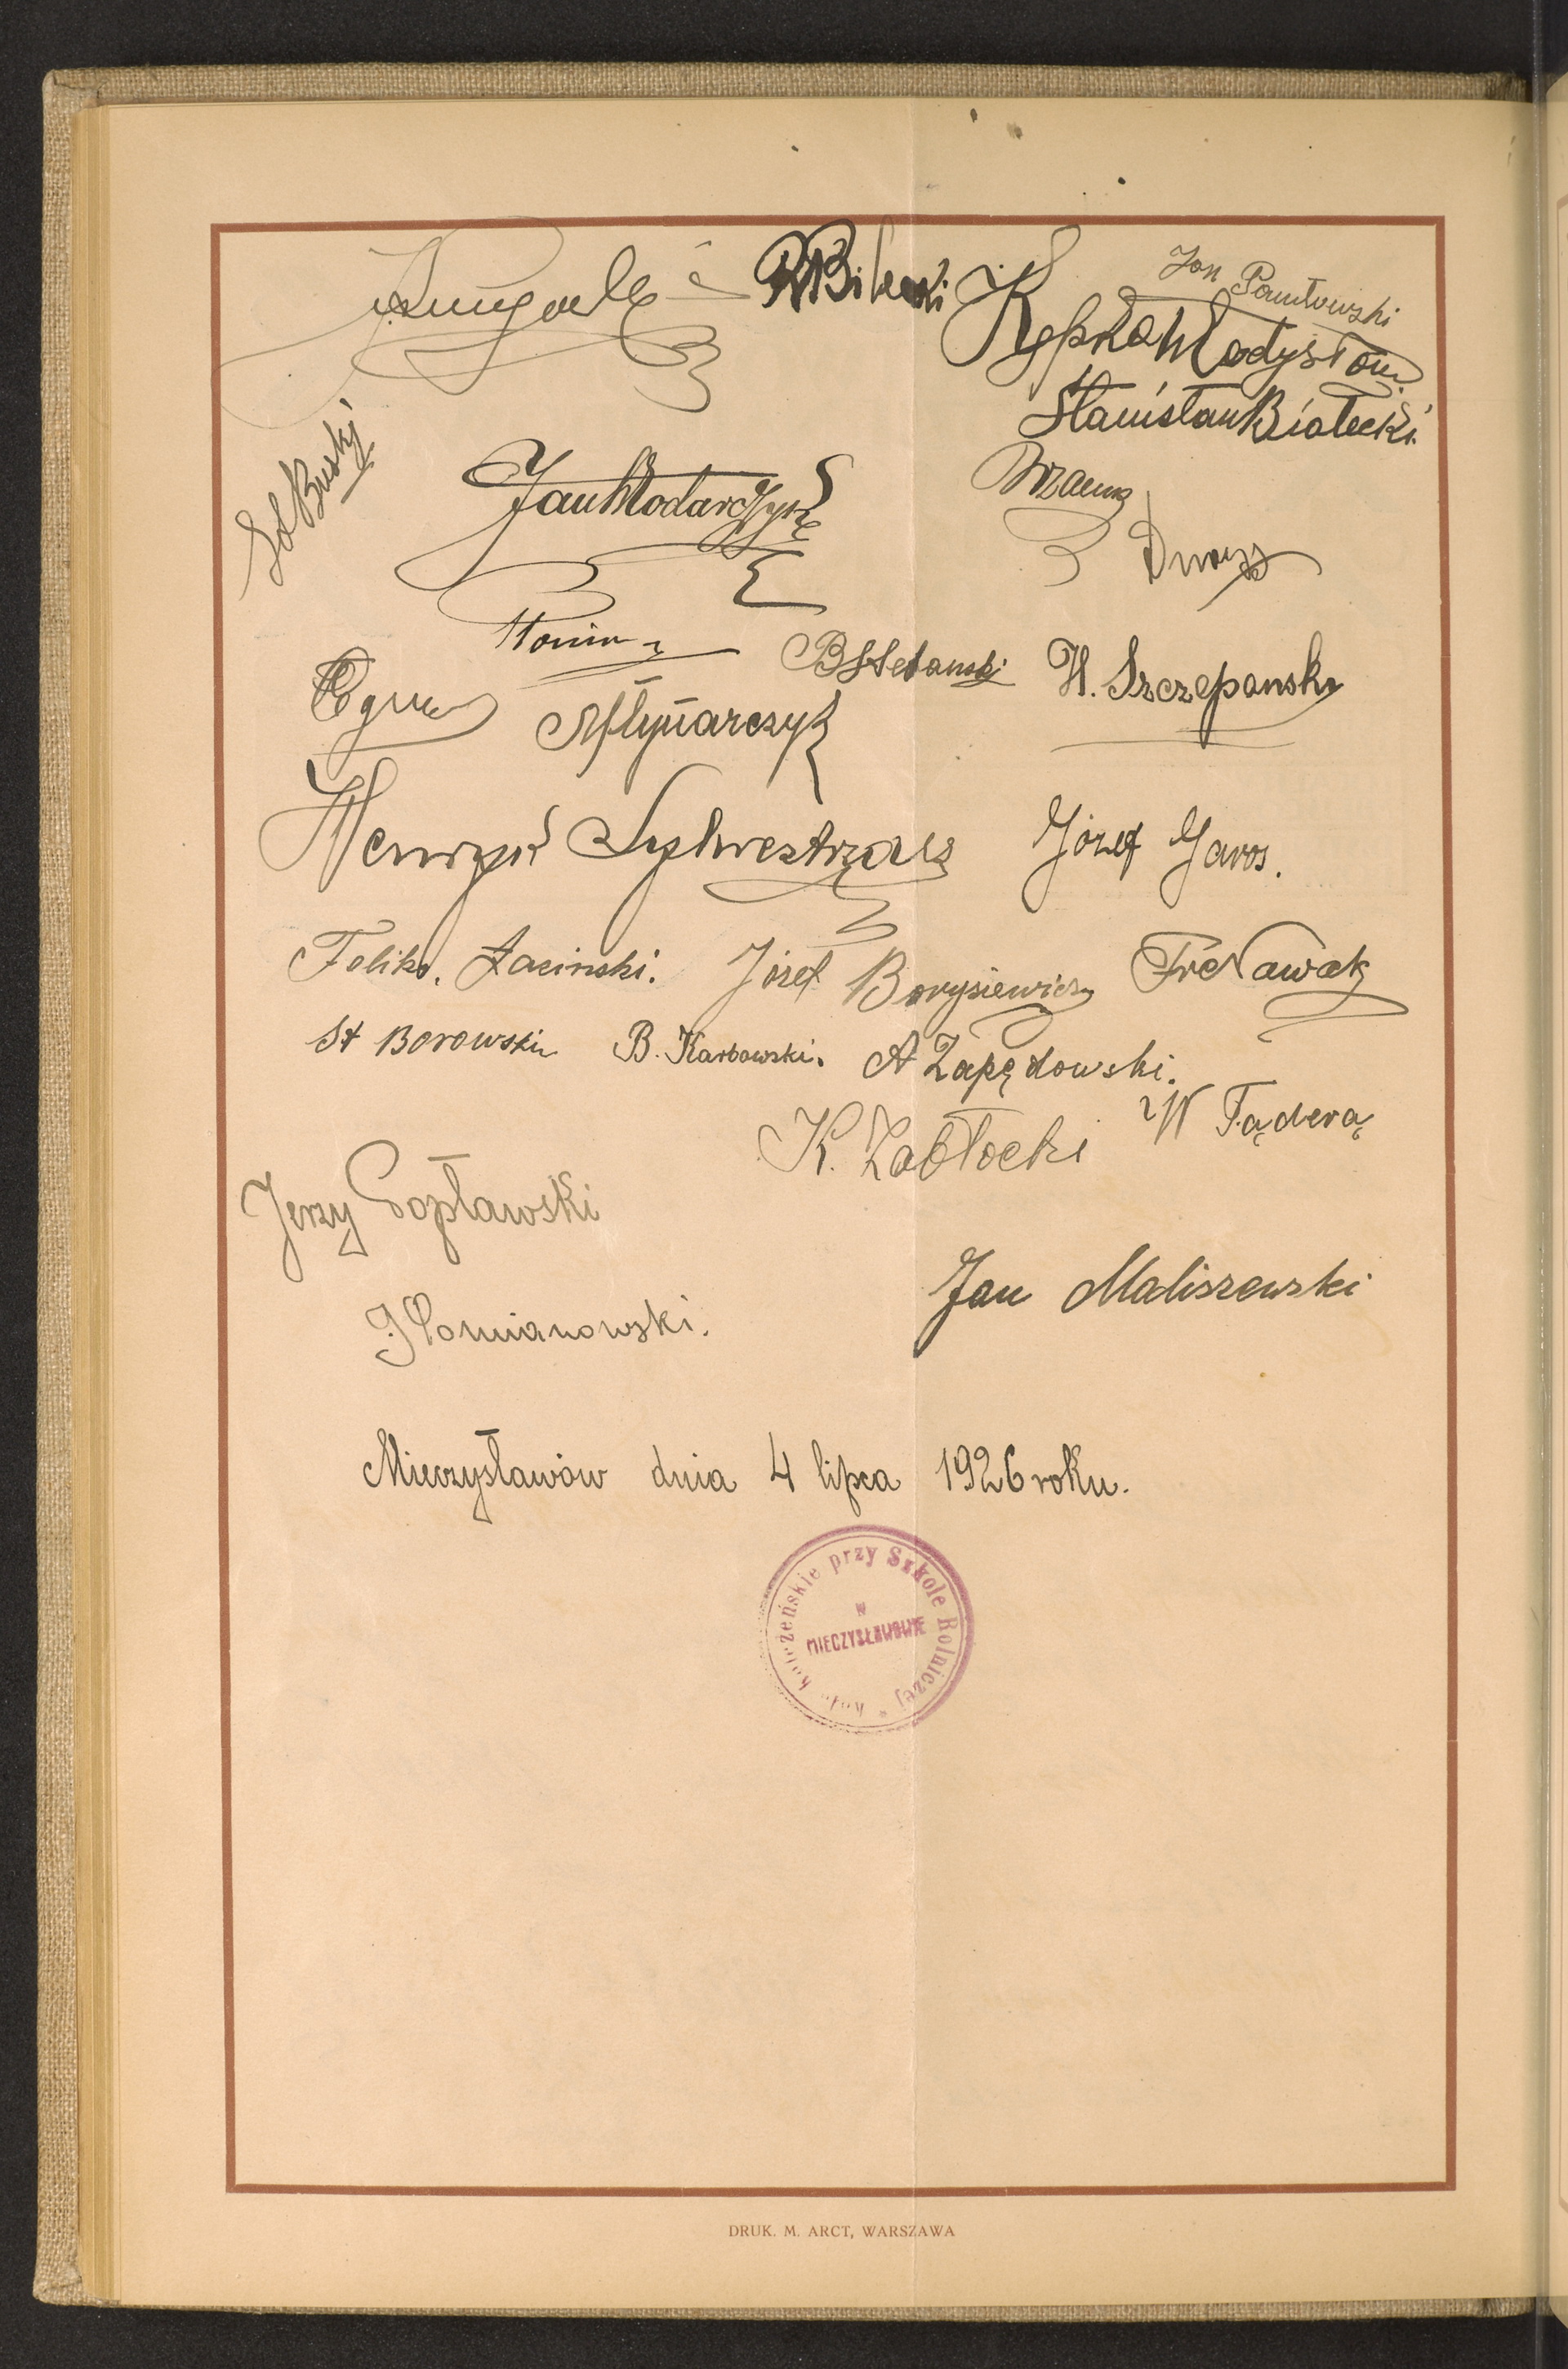 Jan Pawłowski
R Bilecki
Kępka Władysław
Stanisław Białecki
Jan Włodarczyk
B Stefański H. Szczepański
Młynarczyk
Henryk Sylwestrzak Józef Jaros.
Feliks. Łaciński. Józef Borysiewicz Fr Nawak
St Borowski B. Karbowski. A Zapędowski.
K. Zabłocki W Tądera
Jerzy Popławski
Jan Maliszewski
J Pomianowski.
Mieczysławów dnia 4 lipca 1926 roku.
Koło koleżeńskie przy Szkole Rolniczej *
W
MIECZYSŁAWOWIE
DRUK. M. ARCT, WARSZAWA